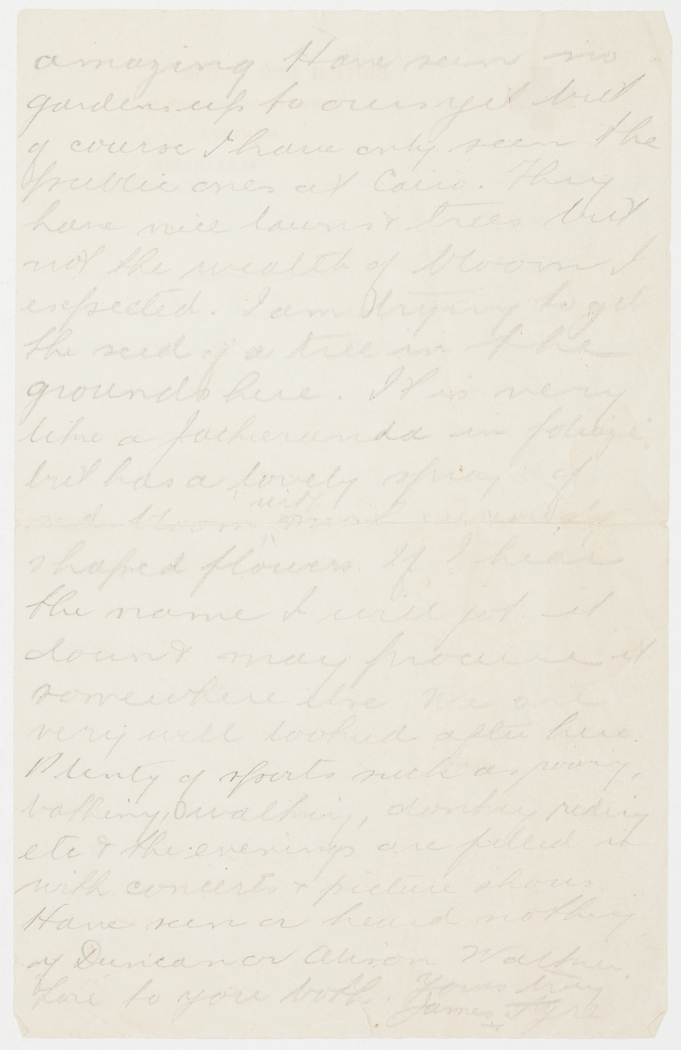 amazing Have seen no
gardens up to ours yet but
of course I have only seen the
public ones at Cairo. They
have nice lawns & trees but
not the wealth of bloom I
expected. I am trying to get
the seed of a tree in the
grounds here. It is very
like a Jackeranda in foliage
but has a lovely spray of
red bloom with most curiously
shaped flowers. If I hear
the name I will jot it
down & may procure it
somewhere else We are
very well looked after here.
Plenty of sports such as rowing,
bathing, walking, donkey riding
etc & the evenings are filled in
with concerts & picture shows
Have seen or heard nothing
of Duncan or Alison
Love to you both. Yours truly
James